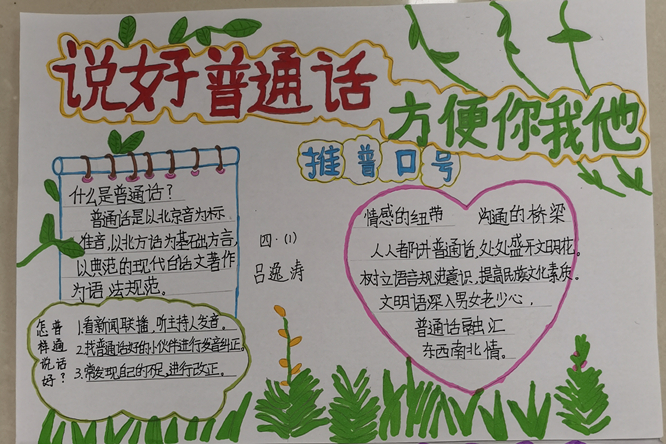 说好普通话
方便你我他
推普口号
什么是普通话？
普通话是以北京音为标
准音，以北方话为基础出方言，
以典范的现代白话文著作
为语法规范。
四·(1)
吕逸涛
怎样说好？
普通话
1.看新闻联播，听主持人发音。
2.找普通话好的小伙伴进行发音纠正。
3.常发现自己的不足，进行改正。
情感的纽带 沟通的桥梁
人人都讲普通话，处处盛开文明花。
树立语言规范意识，提高民族文化素质。
文明语深入男女老少心，
普通话融汇
东西南北情。